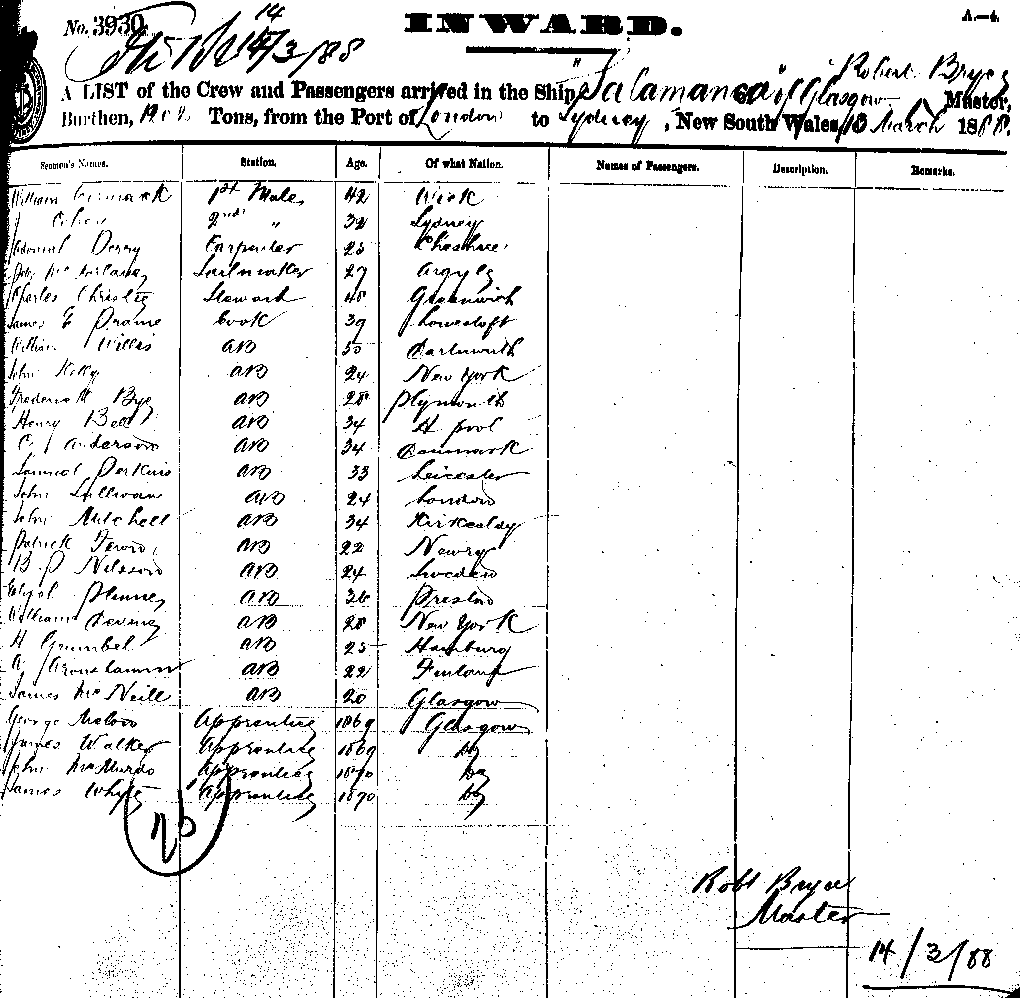 14
No. 3930. INWARD. A.—4.
14/3/88
Robert Bryce
A LIST of the Crew and Passengers arrived in the Ship "Salamanca" of Glasgow Master,
Burthen, Tons, from the Port of London to Sydney, New South Wales, 13 March 1888.
Seamen's Names. Station. Age. Of what Nation. Names of Passengers. Description. Remarks.
William Cormack 1st Mate 42 Wick
2nd " 32 Sydney
Derry Carpenter 25 Cheshire
Sailmaker 27 Argyle
Charles Christie Steward 48 Greenwich
James E Prame Cook 39 Lowestoft
William Willis AB 50 Dartmouth
John AB 24 New York
Frederick Bye AB 28 Plymouth
Henry Bell AB 34 H pool
C J Anderson AB 34 Denmark
Samuel Perkins AB 33 Leicester
John Sullivan AB 24 London
John Mitchell AB 34 Kirkcaldy
Patrick AB 22 Newry
B P Nilsson AB 24 Sweden
AB 36 Preston
William AB 28 New York
H Grumbel AB 25 Hamburg
A AB 22 Finland
James McNeill AB 20 Glasgow
George Apprentice 1869 Glasgow
James Walker Apprentice 1869 do
John McMurdo Apprentice 1870 do
James Whyte Apprentice 1870 do
26
Robt Bryce
Master
14/3/88